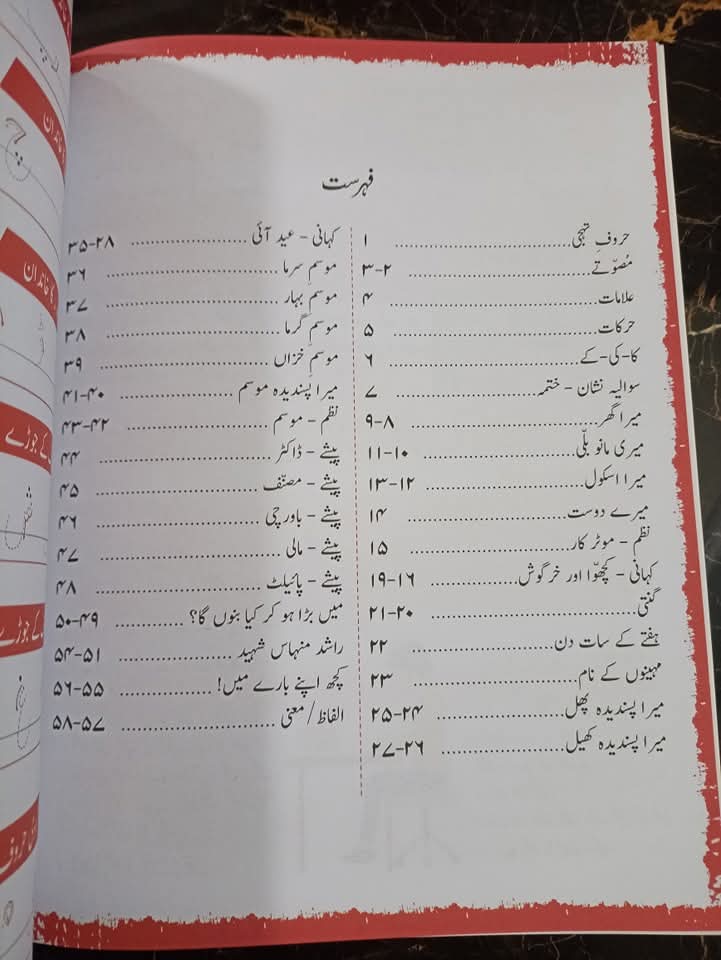 فہرست
حروفِ تہجی ........ ۱
مُصوّتے ........ ۲-۳
علامات ........ ۴
حرکات ........ ۵
کا-کی-کے ........ ۶
سوالیہ نشان - ختمہ ........ ۷
میرا گھر ........ ۸-۹
میری مانو بلّی ........ ۱۰-۱۱
میرا اسکول ........ ۱۲-۱۳
میرے دوست ........ ۱۴
نظم - موٹر کار ........ ۱۵
کہانی - کچھوّا اور خرگوش ........ ۱۶-۱۹
گنتی ........ ۲۰-۲۱
ہفتے کے سات دن ........ ۲۲
مہینوں کے نام ........ ۲۳
میرا پسندیدہ پھل ........ ۲۴-۲۵
میرا پسندیدہ کھیل ........ ۲۶-۲۷
کہانی - عید آئی ........ ۲۸-۳۵
موسمِ سرما ........ ۳۶
موسمِ بہار ........ ۳۷
موسمِ گرما ........ ۳۸
موسمِ خزاں ........ ۳۹
میرا پسندیدہ موسم ........ ۴۰-۴۱
نظم - موسم ........ ۴۲-۴۳
پیشے - ڈاکٹر ........ ۴۴
پیشے - مصنّف ........ ۴۵
پیشے - باورچی ........ ۴۶
پیشے - مالی ........ ۴۷
پیشے - پائیلٹ ........ ۴۸
میں بڑا ہو کر کیا بنوں گا؟ ........ ۴۹-۵۰
راشد منہاس شہید ........ ۵۱-۵۴
کچھ اپنے بارے میں! ........ ۵۵-۵۶
الفاظ/معنی ........ ۵۷-۵۸
خاندان
کا خاندان
کے جوڑے
کے جوڑے
حروف